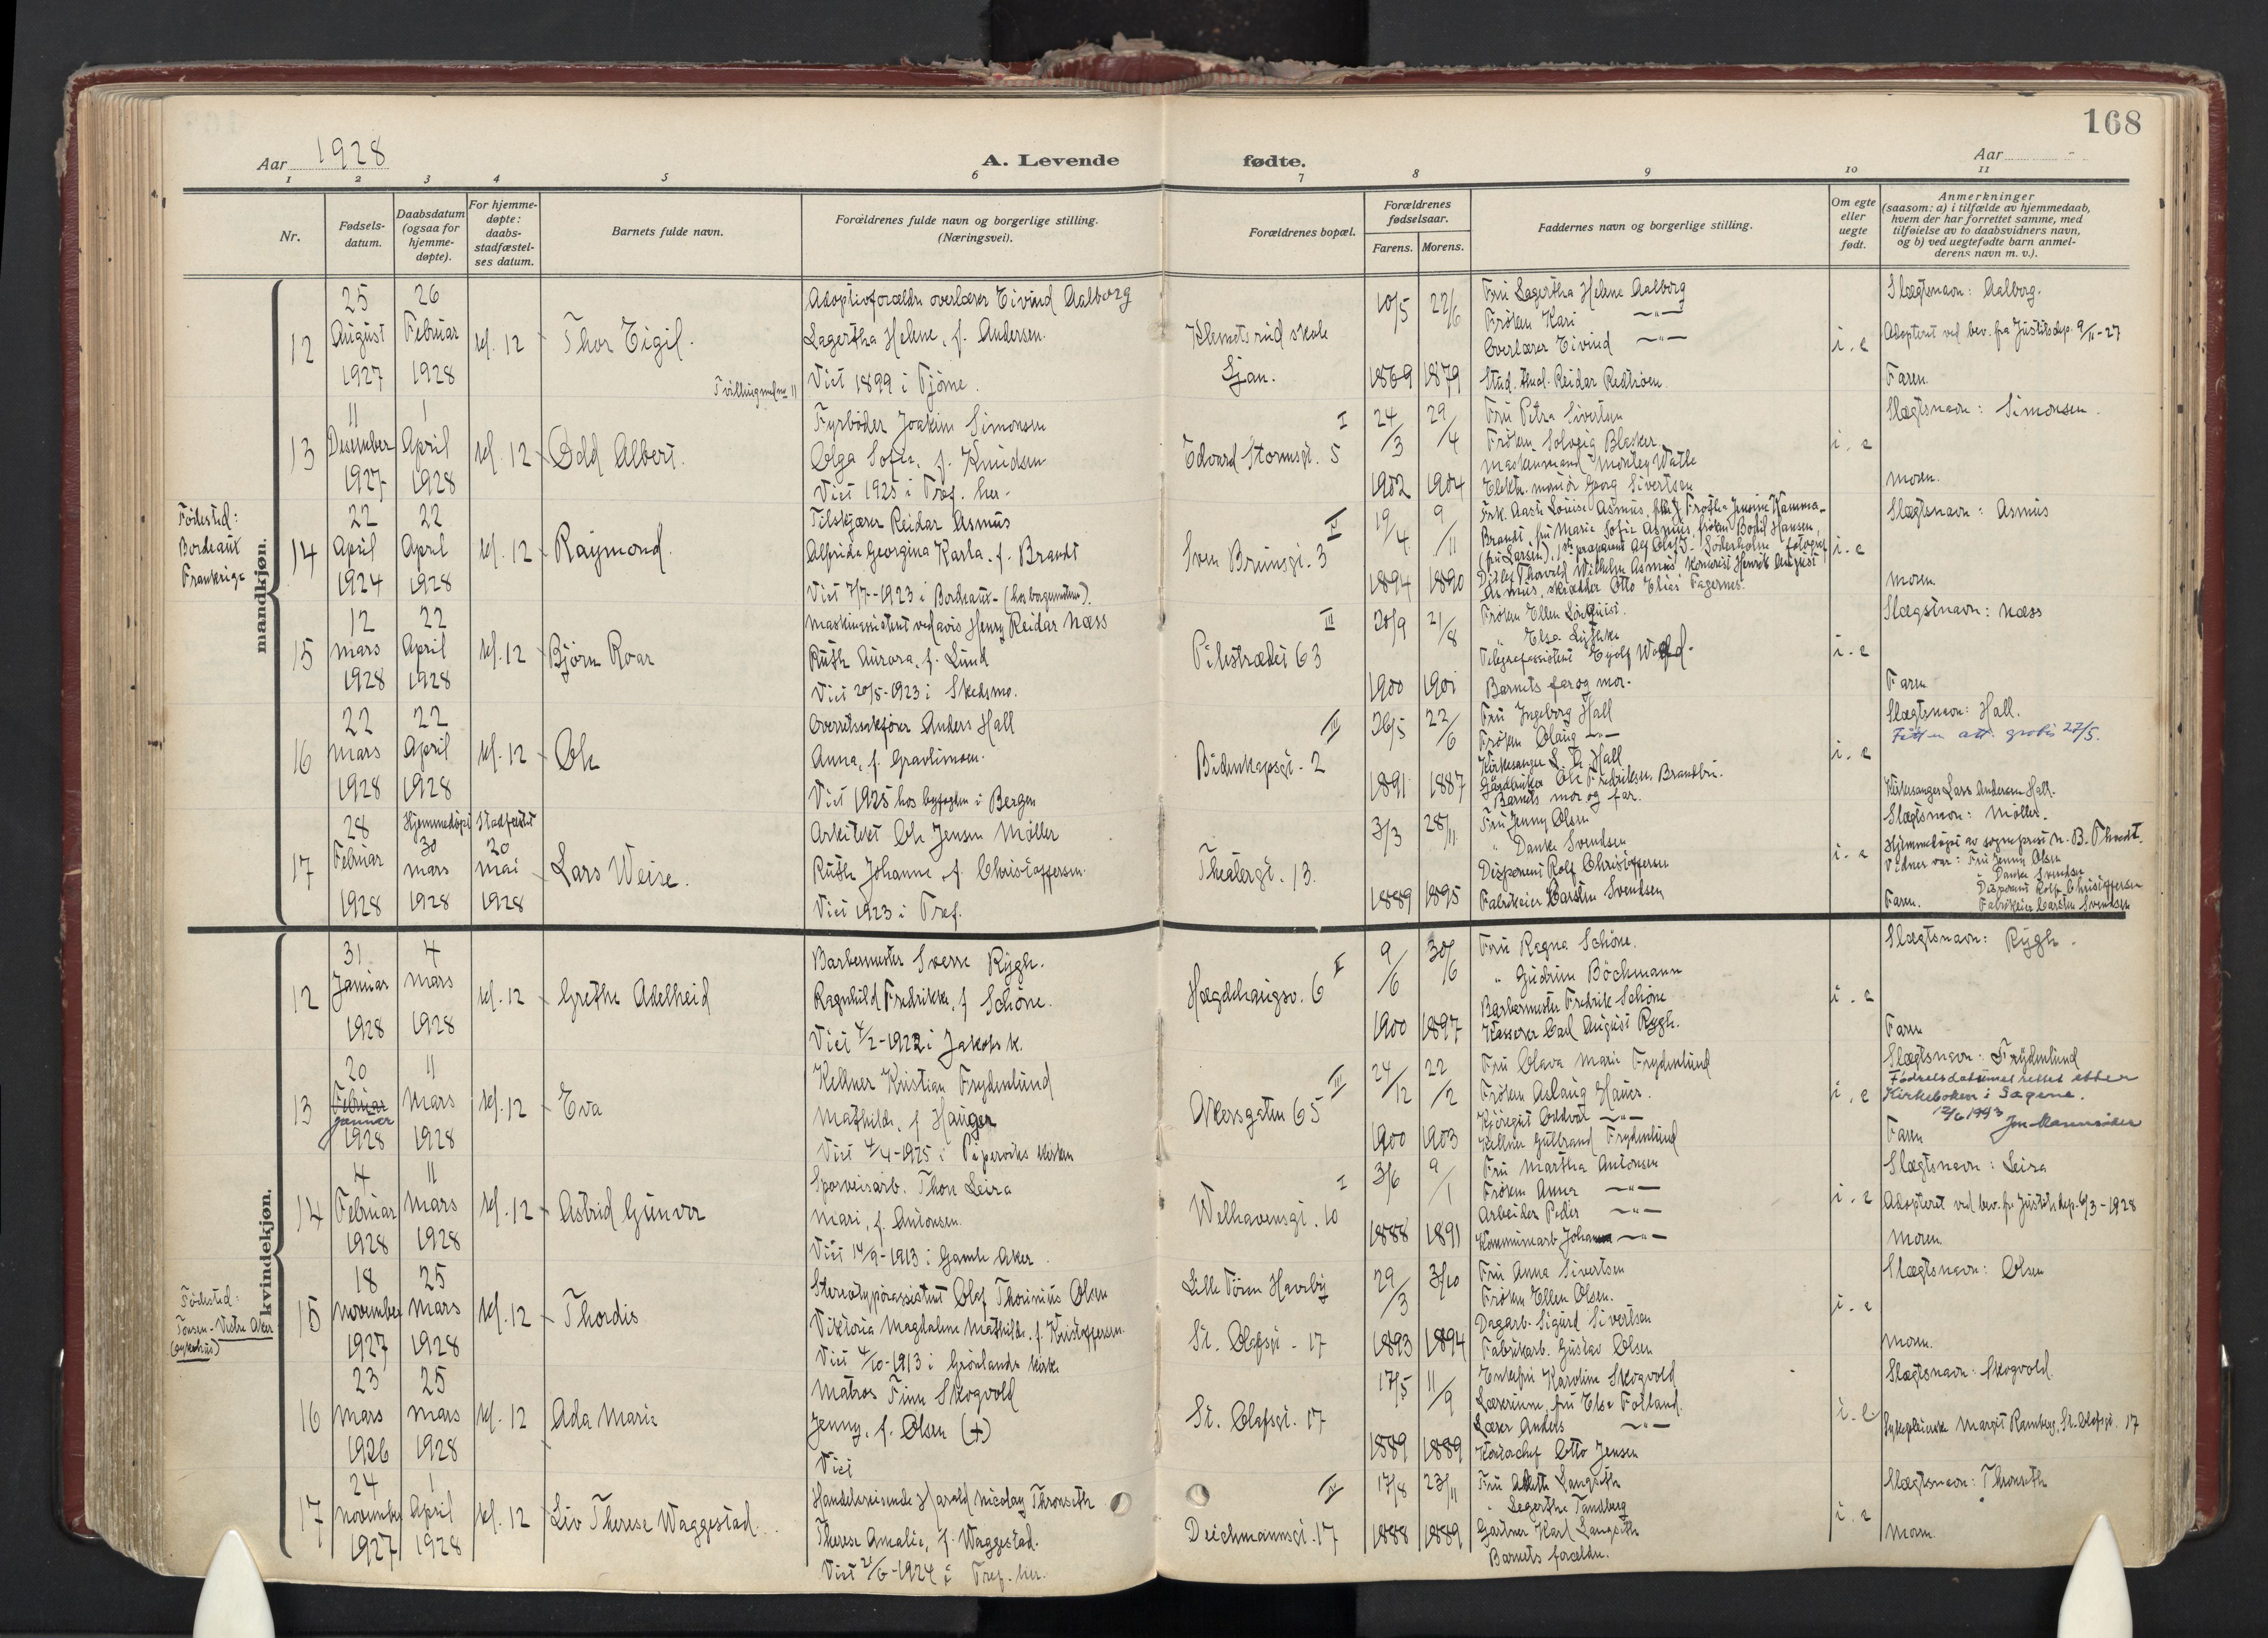 168
Aar 1928
A. Levende fødte.
Aar -
1 2 3 4 5 6 7 8 9 10 11
Nr.
Fødsels-
datum.
Daabsdatum
(ogsaa for
hjemme-
døpte).
For hjemme-
døpte:
daabs-
stadfæstel-
ses datum.
Barnets fulde navn.
Forældrenes fulde navn og borgerlige stilling.
(Næringsvei).
Forældrenes bopæl.
Forældrenes
fødselsaar.
Farens. Morens.
Faddernes navn og borgerlige stilling.
Om egte
eller
uegte
født.
Anmerkninger
(saasom: a) i tilfælde av hjemmedaab,
hvem der har forrettet samme, med
tilføielse av to daabsvidners navn,
og b) ved uegtefødte barn anmel-
derens navn m. v.).
mandkjøn.
12
25
August
1927
26
Februar
1928
kl. 12
Thor Eigil.
Adoptivforældre overlærer Eivind Aalborg
Lagertha Helene, f. Andersen.
Viet 1899 i Tjøme.
Klemetsrud skole
Ljan.
10/5 1869
22/6 1879
Fru Lagertha Helene Aalborg
Frøken Kari —"—
Overlærer Eivind —"—
Stud. theol. Reidar
i. e
Slægtsnavn: Aalborg.
Adopteret ved bev. fra Justitsdep. 9/11-27
Faren
13
11
Desember
1927
1
April
1928
kl. 12
Odd Albert.
Fyrbøder Joakim Simonsen
Olga Sofie, f. Knudsen
Viet 1925 i Tref. her.
I
Edvard Stormsgt. 5
24/3 1902
29/4 1904
Fru Petra Sivertsen
Frøken Solveig
Maskinmand
Elektr. montør Georg Sivertsen
i. e
Slægtsnavn: Simonsen.
Moren.
Fødested:
Bordeaux
Frankrige
14
22
April
1924
22
April
1928
kl. 12
Raymond.
Tilskjærer Reidar Asmus
Alfrida Georgina Karla, f. Brandt
Viet 7/7-1923 i Bordeaux (hos borgemesteren).
II
Sven Bruunsgt. 3
19/4 1894
9/11 1890
Frk. Aasta Louise Asmus,
Brandt, fru Marie Sofie Asmus, frøken Bodil Hansen,
(fru Larsen),
Ditlef Thorvald Wilhelm Asmus, kontorist Henrik August
Asmus, skrædder Otto Elias Fagernes.
i. e
Slægtsnavn: Asmus
Moren
15
12
Mars
1928
22
April
1928
kl. 12
Bjørn Roar
Maskinassistent ved avis Henry Reidar Næss
Ruth Aurora, f. Lund
Viet 20/5-1923 i Skedsmo.
III
Pilestrædet 63
20/9 1900
21/8 1901
Frøken Ellen
" Elsa
Telegrafassistent Eyolf
Barnets far og mor.
i. e
Slægtsnavn: Næss
Faren
16
22
Mars
1928
22
April
1928
kl. 12
Ole
Overretssakfører Anders Hall
Anna, f. Gravlimoen.
Viet 1925 hos byfogden i Bergen
III
Bidenkapsgt. 2
26/5 1891
22/6 1887
Fru Ingeborg Hall
Frøken Olaug —"—
Kirkesanger L. A. Hall
Gårdbruker Ole Fredriksen Brandbu.
Barnets mor og far.
i. e
Slægtsnavn: Hall.
Født. att. gratis 22/5.
Kirkesanger Lars Andersen Hall.
17
28
Februar
1928
Hjemmedøpt
30
mars
1928
Stadfæstet
20
mai
1928
Lars Weise.
Arkitekt Ole Jensen Møller
Ruth Johanne, f. Christoffersen.
Viet 1923 i Tref.
Theatergt. 13.
3/3 1889
28/11 1895
Fru Jenny Olsen
" Danke Svendsen
Disponent Rolf Christoffersen
Fabrikeier Carsten Svendsen
i. e
Slægtsnavn: Møller.
Hjemmedøpt av sogneprest N. B. Thvedt.
Vidner var: Fru Jenny Olsen
" Danke Svendsen
Disponent Rolf Christoffersen
Faren. Fabrikeier Carsten Svendsen
kvindekjøn.
12
31
Januar
1928
4
Mars
1928
kl. 12
Grethe Adelheid
Barbermester Sverre Rygh.
Ragnhild Fredrikke, f. Schöne.
Viet 4/2-1922 i Jakobs k.
II
Hægdehaugsv. 6
9/6 1900
30/6 1897
Fru Ragna Schöne.
" Gudrun Böchmann
Barbermester Fredrik Schöne
Kasserer Carl August Rygh.
i. e
Slægtsnavn: Rygh.
Faren
13
20
Februar
januar
1928
11
Mars
1928
kl. 12
Eva
Kellner Kristian Frydenlund
Mathilde, f. Hauger
Viet 4/4-1925 i Piperviks kirken
III
Akersgaten 65
24/12 1900
22/2 1903
Fru Olava Marie Frydenlund
Frøken Aslaug Hauer.
Kjøregut Oddvar —"—
Kellner Gulbrand Frydenlund
i. e
Slægtsnavn: Frydenlund
Fødselsdatumet rettet etter
Kirkeboken i Sagene.
12/6 1993
Faren
14
4
Februar
1928
11
Mars
1928
kl. 12
Astrid Gunvor
Sporveisarb. Thore Leira
Mari, f. Antonsen.
Viet 14/9-1913 i Gamle Aker
I
Welhavensgt. 10
3/6 1888
9/1 1891
Fru Martha Antonsen
Frøken Anna —"—
Arbeider Peder —"—
Kommunearb Johan —"—
i. e
Slægtsnavn: Leira
Adopteret ved bev. fra Justitsdep. 6/3-1928
Moren.
Fødested:
Tonsen - Vestre Aker
(sykehus)
15
18
November
1927
25
Mars
1928
kl. 12
Thordis
Stereotypørassistent Olaf Thorinius Olsen
Viktoria Magdalene Mathilde, f. Kristoffersen.
Viet 4/10-1913 i Grønlands kirke
Lille Tøien Haveby
St. Olafsgt. 17
29/3 1893
3/10 1894
Fru Anna Sivertsen
Frøken Ellen Olsen.
Dagarb. Sigurd Sivertsen
Fabrikarb. Gustav Olsen
i. e
Slægtsnavn: Olsen
Moren.
16
23
Mars
1926
25
Mars
1928
kl. 12
Ada Marie
Matros Finn Skogvold
Jenny, f. Olsen (+)
Viet
St. Olafsgt. 17
17/5 1889
11/9 1889
Enkefru Karoline Skogvold
Lærerinne, fru Elsa Folland.
Lærer Anders —"—
Kontorchef Otto Jensen
i. e
Slægtsnavn: Skogvold.
Sykepleierske Margit Ramberg, St. Olafsgt. 17
17
24
November
1927
1
April
1928
kl. 12
Liv Therese Waggestad.
Handelsreisende Harald Nicolay Thronseth
Therese Amalie, f. Waggestad.
Viet 21/6-1924 i Tref. her.
Deichmannsgt. 17
17/8 1888
23/11 1889
Fru Langseth
" Lagertha Tandberg
Gartner Karl Langseth
Barnets forældre.
i. e
Slægtsnavn: Thronseth
Moren.